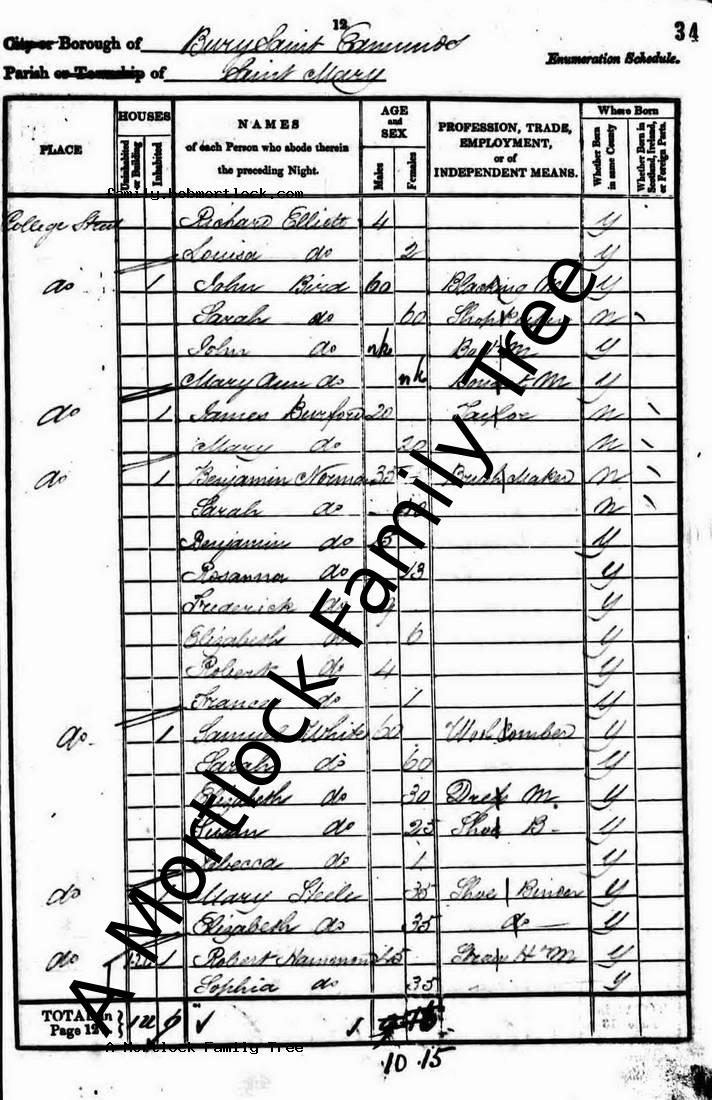 12
34
City or Borough of Bury Saint Edmunds
Enumeration Schedule.
Parish or Township of Saint Mary
PLACE
HOUSES
Uninhabited or Building
Inhabited
NAMES
of each Person who abode therein the preceding Night.
AGE and SEX
Males
Females
PROFESSION, TRADE, EMPLOYMENT, or of INDEPENDENT MEANS.
Where Born
Whether Born in same County
Whether Born in Scotland, Ireland, or Foreign Parts.
family.hobmortlock.com
College Street Richard Elliott 4 y
Louisa do 2 y
do 1 John Bird 60 Blacking M y
Sarah do 60 Shop n
John do nk M y
Mary Ann do nk M y
do 1 James Burford 20 Taylor n
Mary do 20 n
do 1 Benjamin Norman 35 Brush Maker n
Sarah do n
Benjamin do 15 y
Rosanna do 13 y
Frederick do 9 y
Elizabeth do 6 y
Robert do 4 y
Frances do 1 y
do 1 Samuel White 60 Wool Comber y
Sarah do 60 y
Elizabeth do 30 Dress M. y
Susan do 25 Shoe B y
Rebecca do 1 y
do Mary Steele 35 Shoe Binder y
Elizabeth do 35 do y
do 1 Robert Hammond 45 Straw H M y
Sophia do 35 y
TOTAL in Page 12 6
10 15
A Mortlock Family Tree
A Mortlock Family Tree